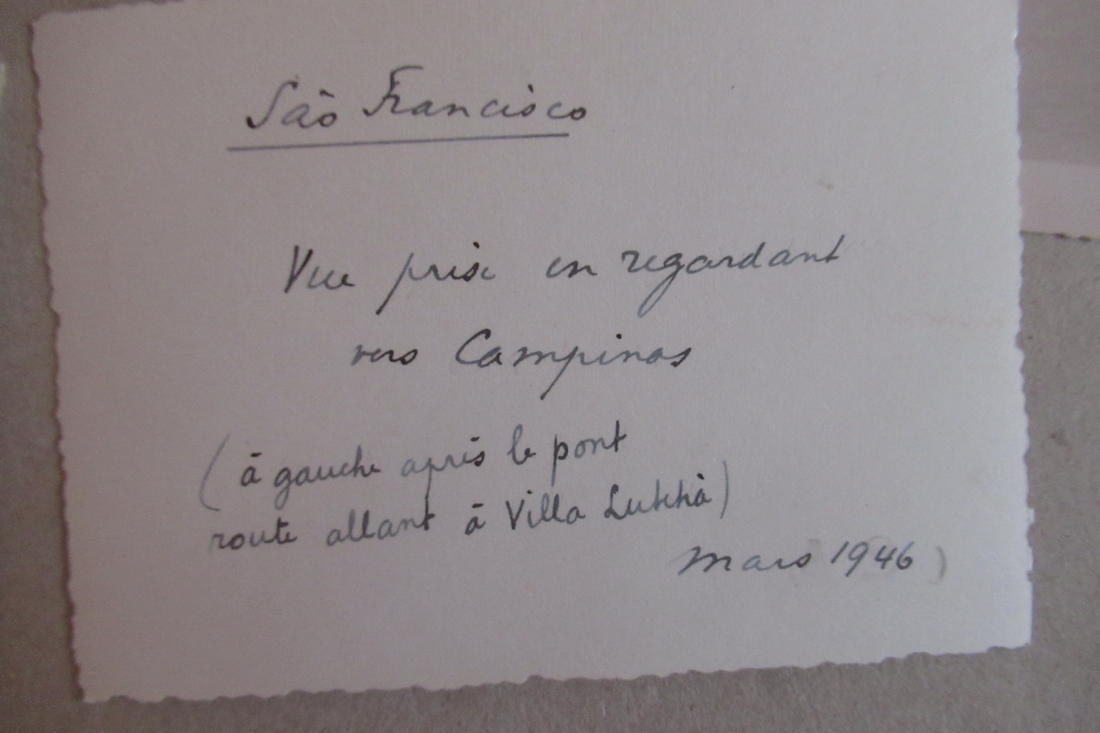 São Francisco
Vue prise en regardant
vers Campinas
(à gauche après le pont
route allant à Villa
Mars 1946)